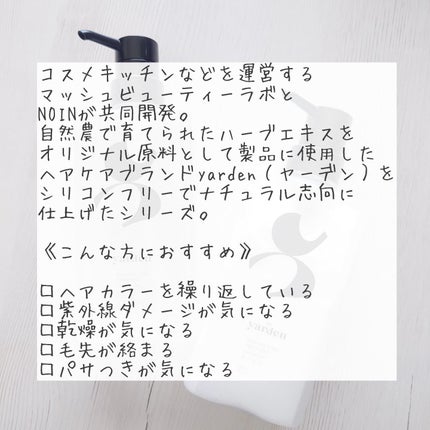 コスメキッチンなどを運営する
マッシュビューティーラボと
NOINが共同開発。
自然農で育てられたハーブエキスを
オリジナル原料として製品に使用した
ヘアケアブランドyarden(ヤーデン)を
シリコンフリーでナチュラル志向に
仕上げたシリーズ。
《こんな方におすすめ》
□ヘアカラーを繰り返している
□紫外線ダメージが気になる
□乾燥が気になる
□毛先が絡まる
□パサつきが気になる
yarden